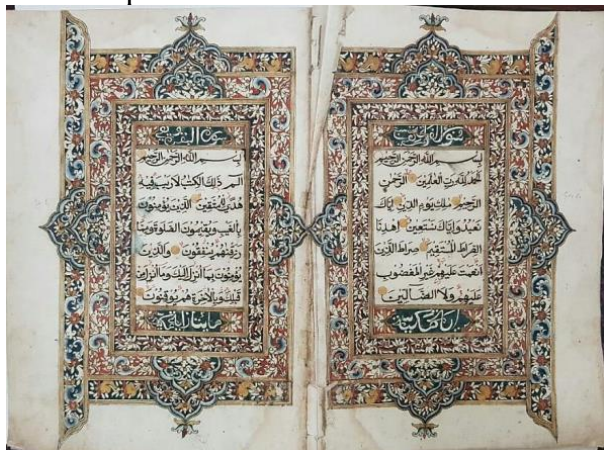 سورة
بسم الله الرحمن الرحيم
الحمد لله رب العلمين الرحمن
الرحيم ملك يوم الدين اياك
نعبد واياك نستعين اهدنا
الصراط المستقيم صراط الذين
انعمت عليهم غير المغضوب
عليهم ولا الضالين
بسم الله الرحمن الرحيم
الم ذلك الكتب لا ريب فيه
هدى للمتقين الذين يؤمنون
بالغيب ويقيمون الصلوة ومما
رزقنهم ينفقون والذين
يؤمنون بما انزل اليك وما انزل من
قبلك وبالاخرة هم يوقنون